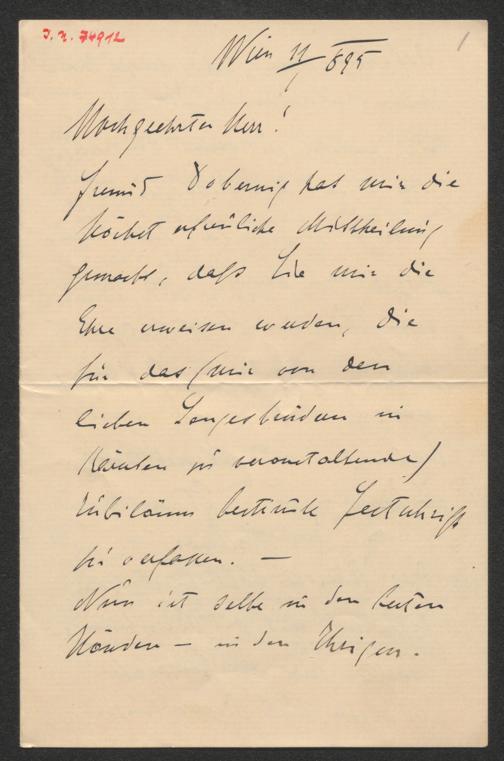 I. N. 74912
1
Wien 11/1 895
Hochgeehrter Herr!
Freund Dobernig hat mir die
höchst erfreuliche Mittheilung
gemacht, daß Sie mir die
Ehre erweisen werden, die
für das (mir von den
lieben Sangesbrüdern in
Kärnten zu veranstaltende)
Jubiläum bestimmte Festschrift
zu verfassen. —
Nun ist selbe in den besten
Händen — in den Ihrigen.